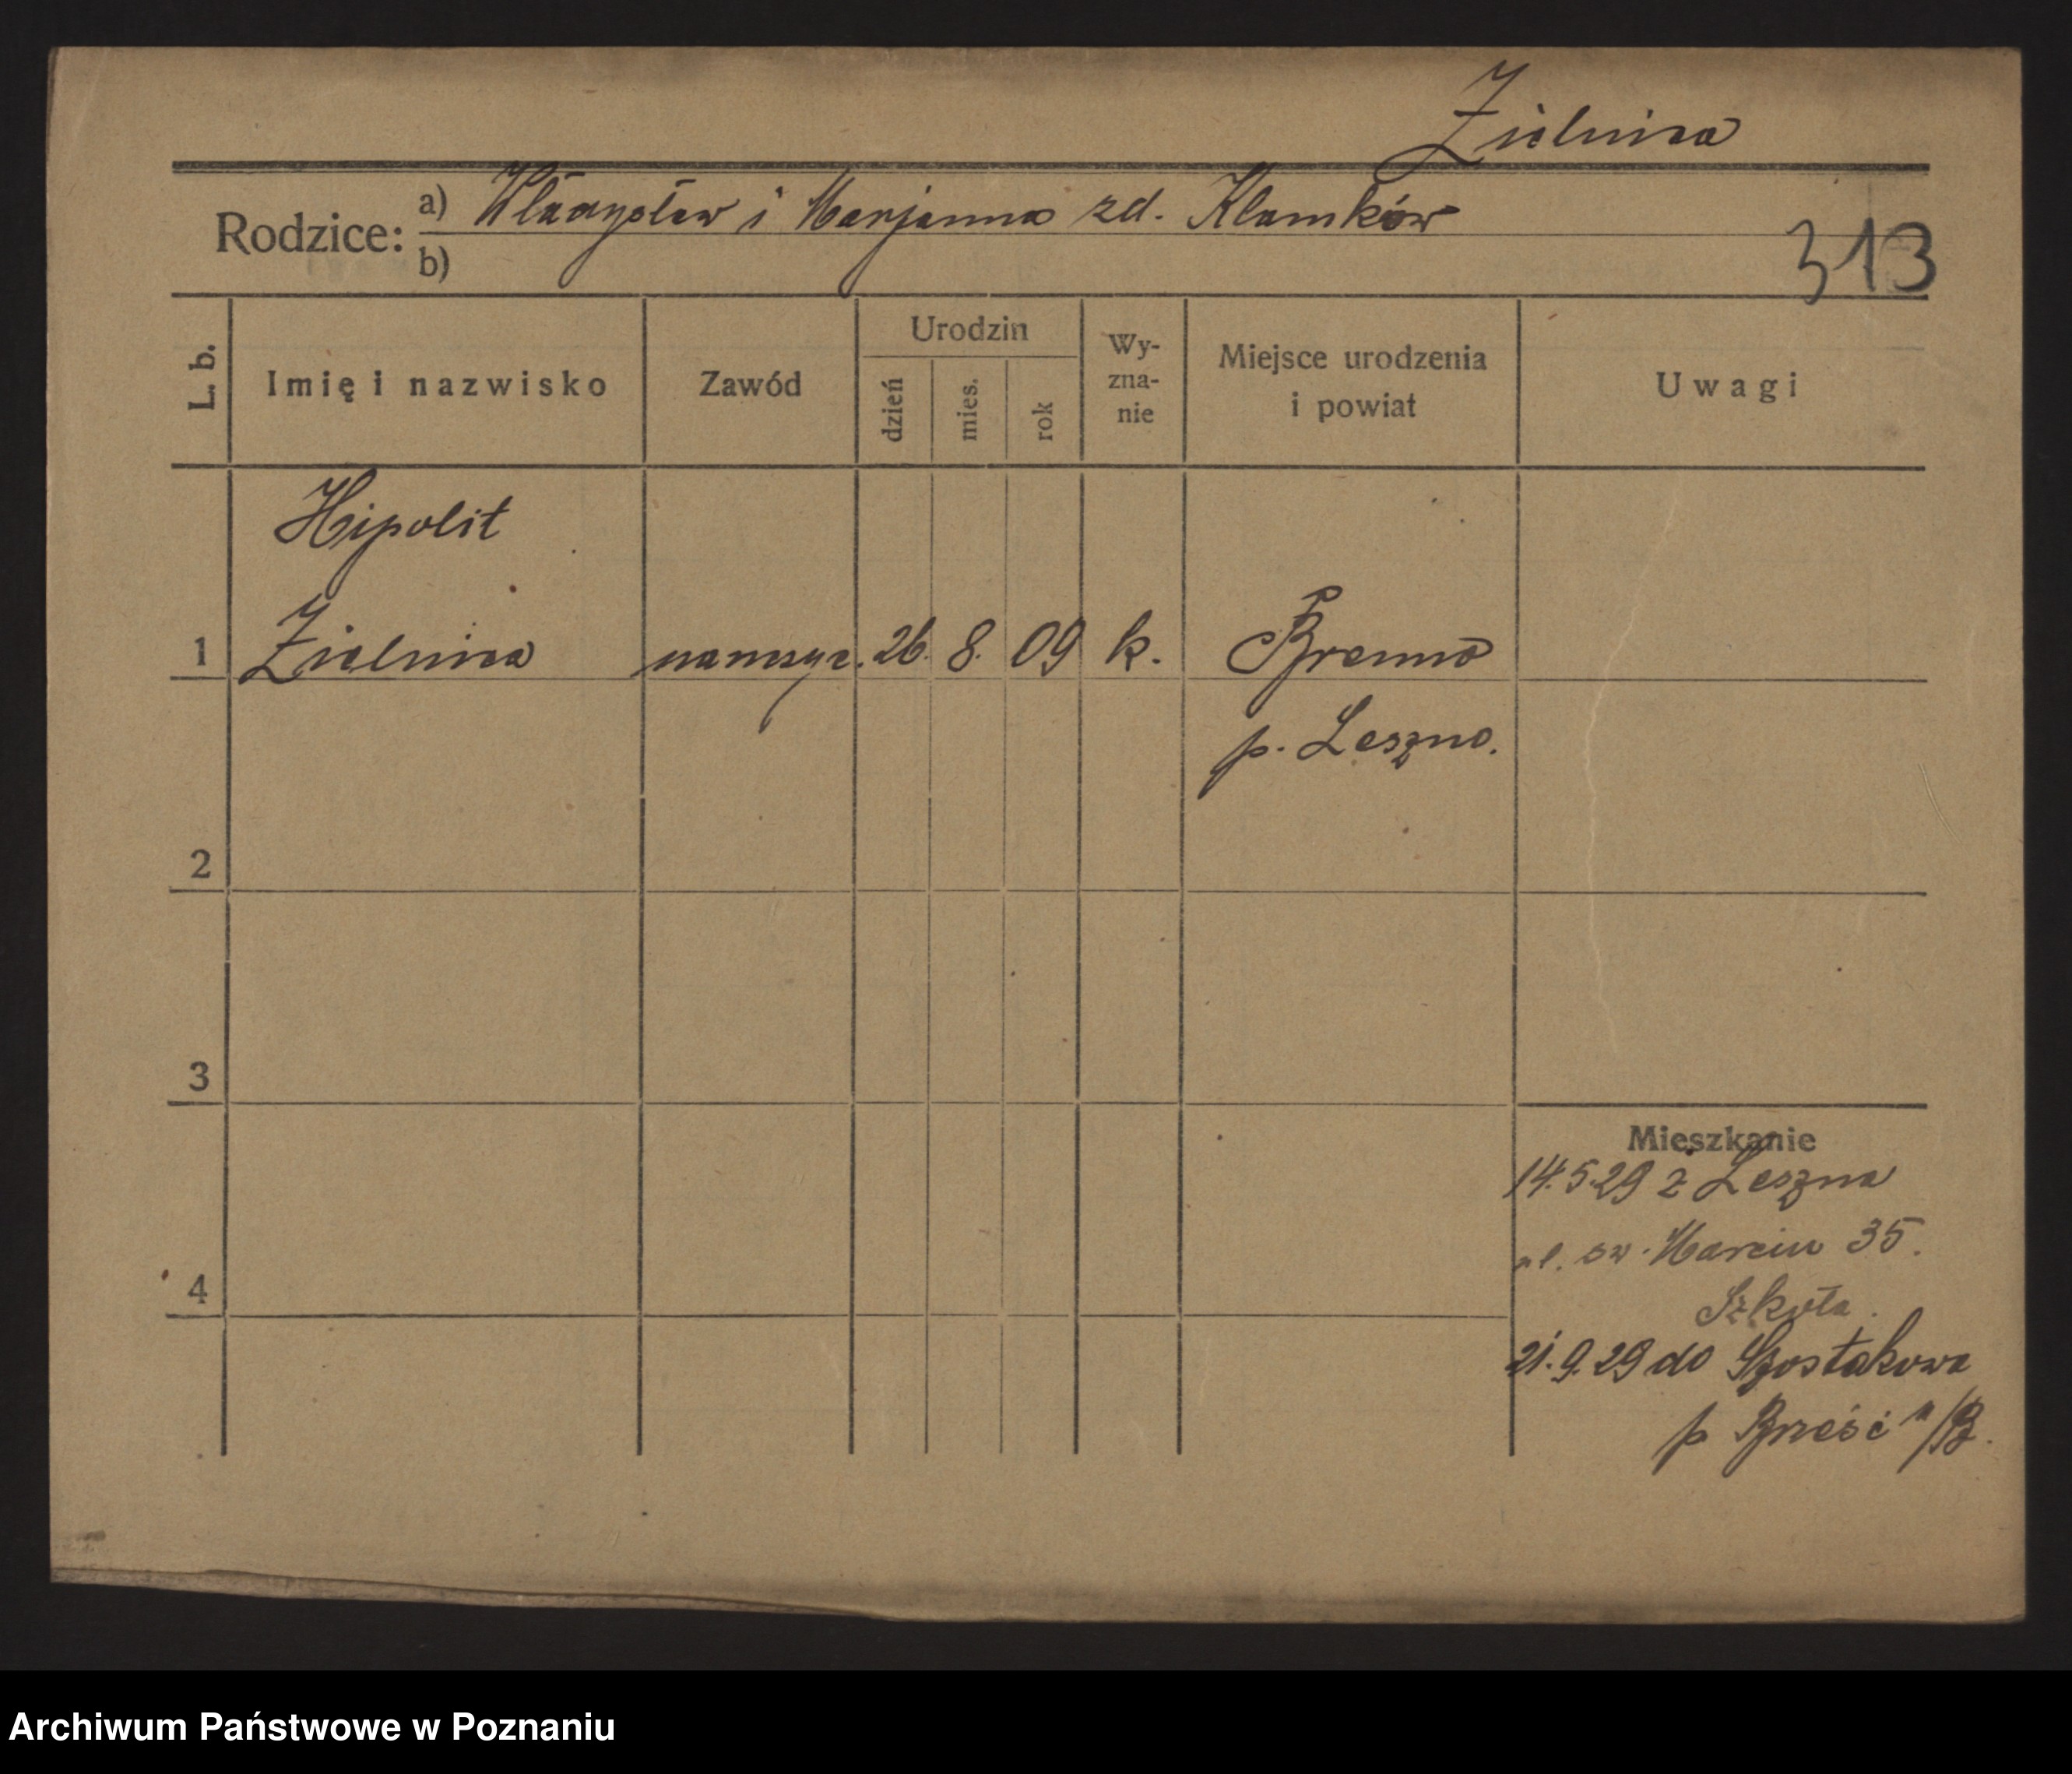 Zielnica
Rodzice: a) Władysław i Marjanna zd. Klamków
b)
313
L. b. Imię i nazwisko Zawód Urodzin dzień mies. rok Wy-zna-nie Miejsce urodzenia i powiat Uwagi
Hipolit
1 Zielnica nauczyc. 26. 8. 09 k. Brenno
p. Leszno.
2
3
Mieszkanie
14.5.29 z Leszna
ul. św. Marcin 35.
4
Szkoła.
21.9.29 do Szostakowa
p Brześć n/B.
Archiwum Państwowe w Poznaniu